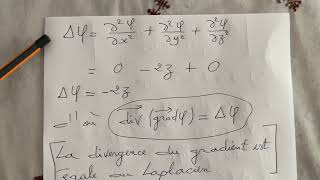 Δφ = ∂²φ/∂x² + ∂²φ/∂y² + ∂²φ/∂z²
= 0 -2z + 0
Δφ = -2z
d'où div (grad(φ)) = Δφ
La divergence du gradient est
égale au Laplacien